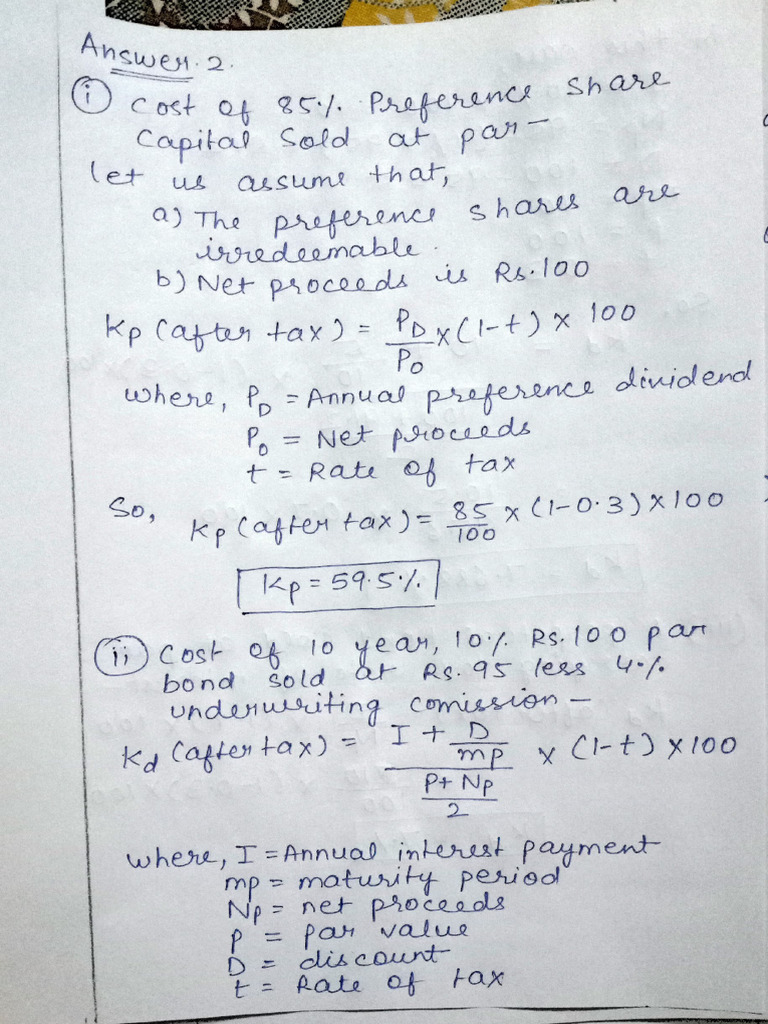 Answer. 2.
(i) Cost of 85%. Preference Share
Capital Sold at par -
let us assume that,
a) The preference shares are
irredeemable.
b) Net proceeds is Rs. 100
Kp (after tax) = PD/Po x (1-t) x 100
where, PD = Annual preference dividend
Po = Net proceeds
t = Rate of tax
So, Kp (after tax) = 85/100 x (1-0.3) x 100
Kp = 59.5%
(ii) Cost of 10 year, 10% Rs. 100 par
bond sold at Rs. 95 less 4%
underwriting comission -
Kd (after tax) = (I + D/mp)/((P + Np)/2) x (1-t) x 100
where, I = Annual interest payment
mp = maturity period
Np = net proceeds
P = par value
D = discount
t = Rate of tax